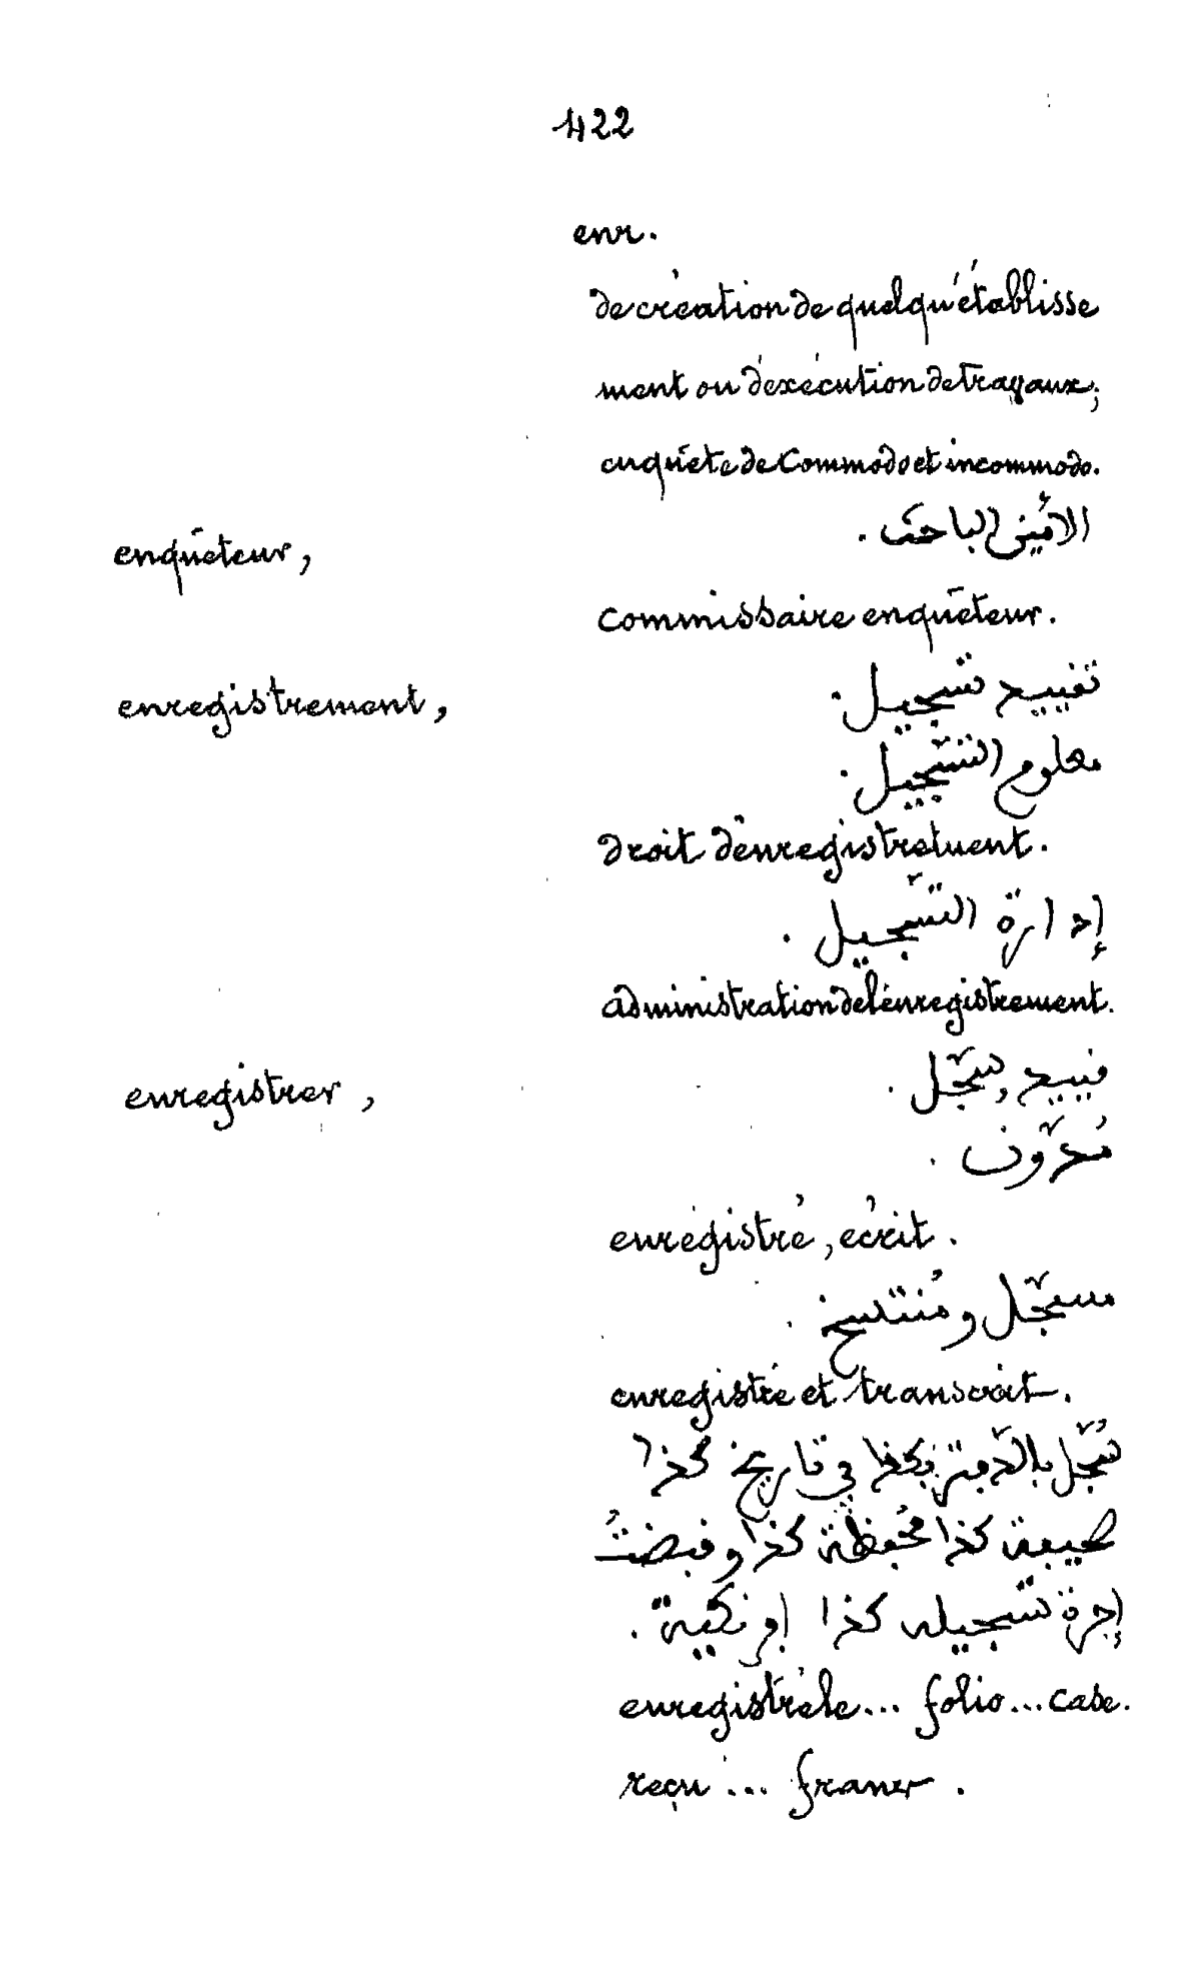 422
enr.
de création de quelqu'établisse
ment ou d'exécution de travaux;
enquête de Commodo et incommodo.
enquêteur,
الأمين الباحث.
commissaire enquêteur.
enregistrement,
تقييد تسجيل.
معلوم التسجيل.
droit d'enregistrement.
إدارة التسجيل.
administration de l'enregistrement.
enregistrer,
قييد, سجّل.
مُدوّن.
enregistré, écrit.
مسجّل ومُنتسخ.
enregistré et transcrit.
سُجّل بالدّفتر بكذا في تاريخ كذا
صحيفة كذا محفظة كذا وقبضتُ
إجرة تسجيله كذا فرنكية.
enregistré le... folio... case.
reçu ... francs.